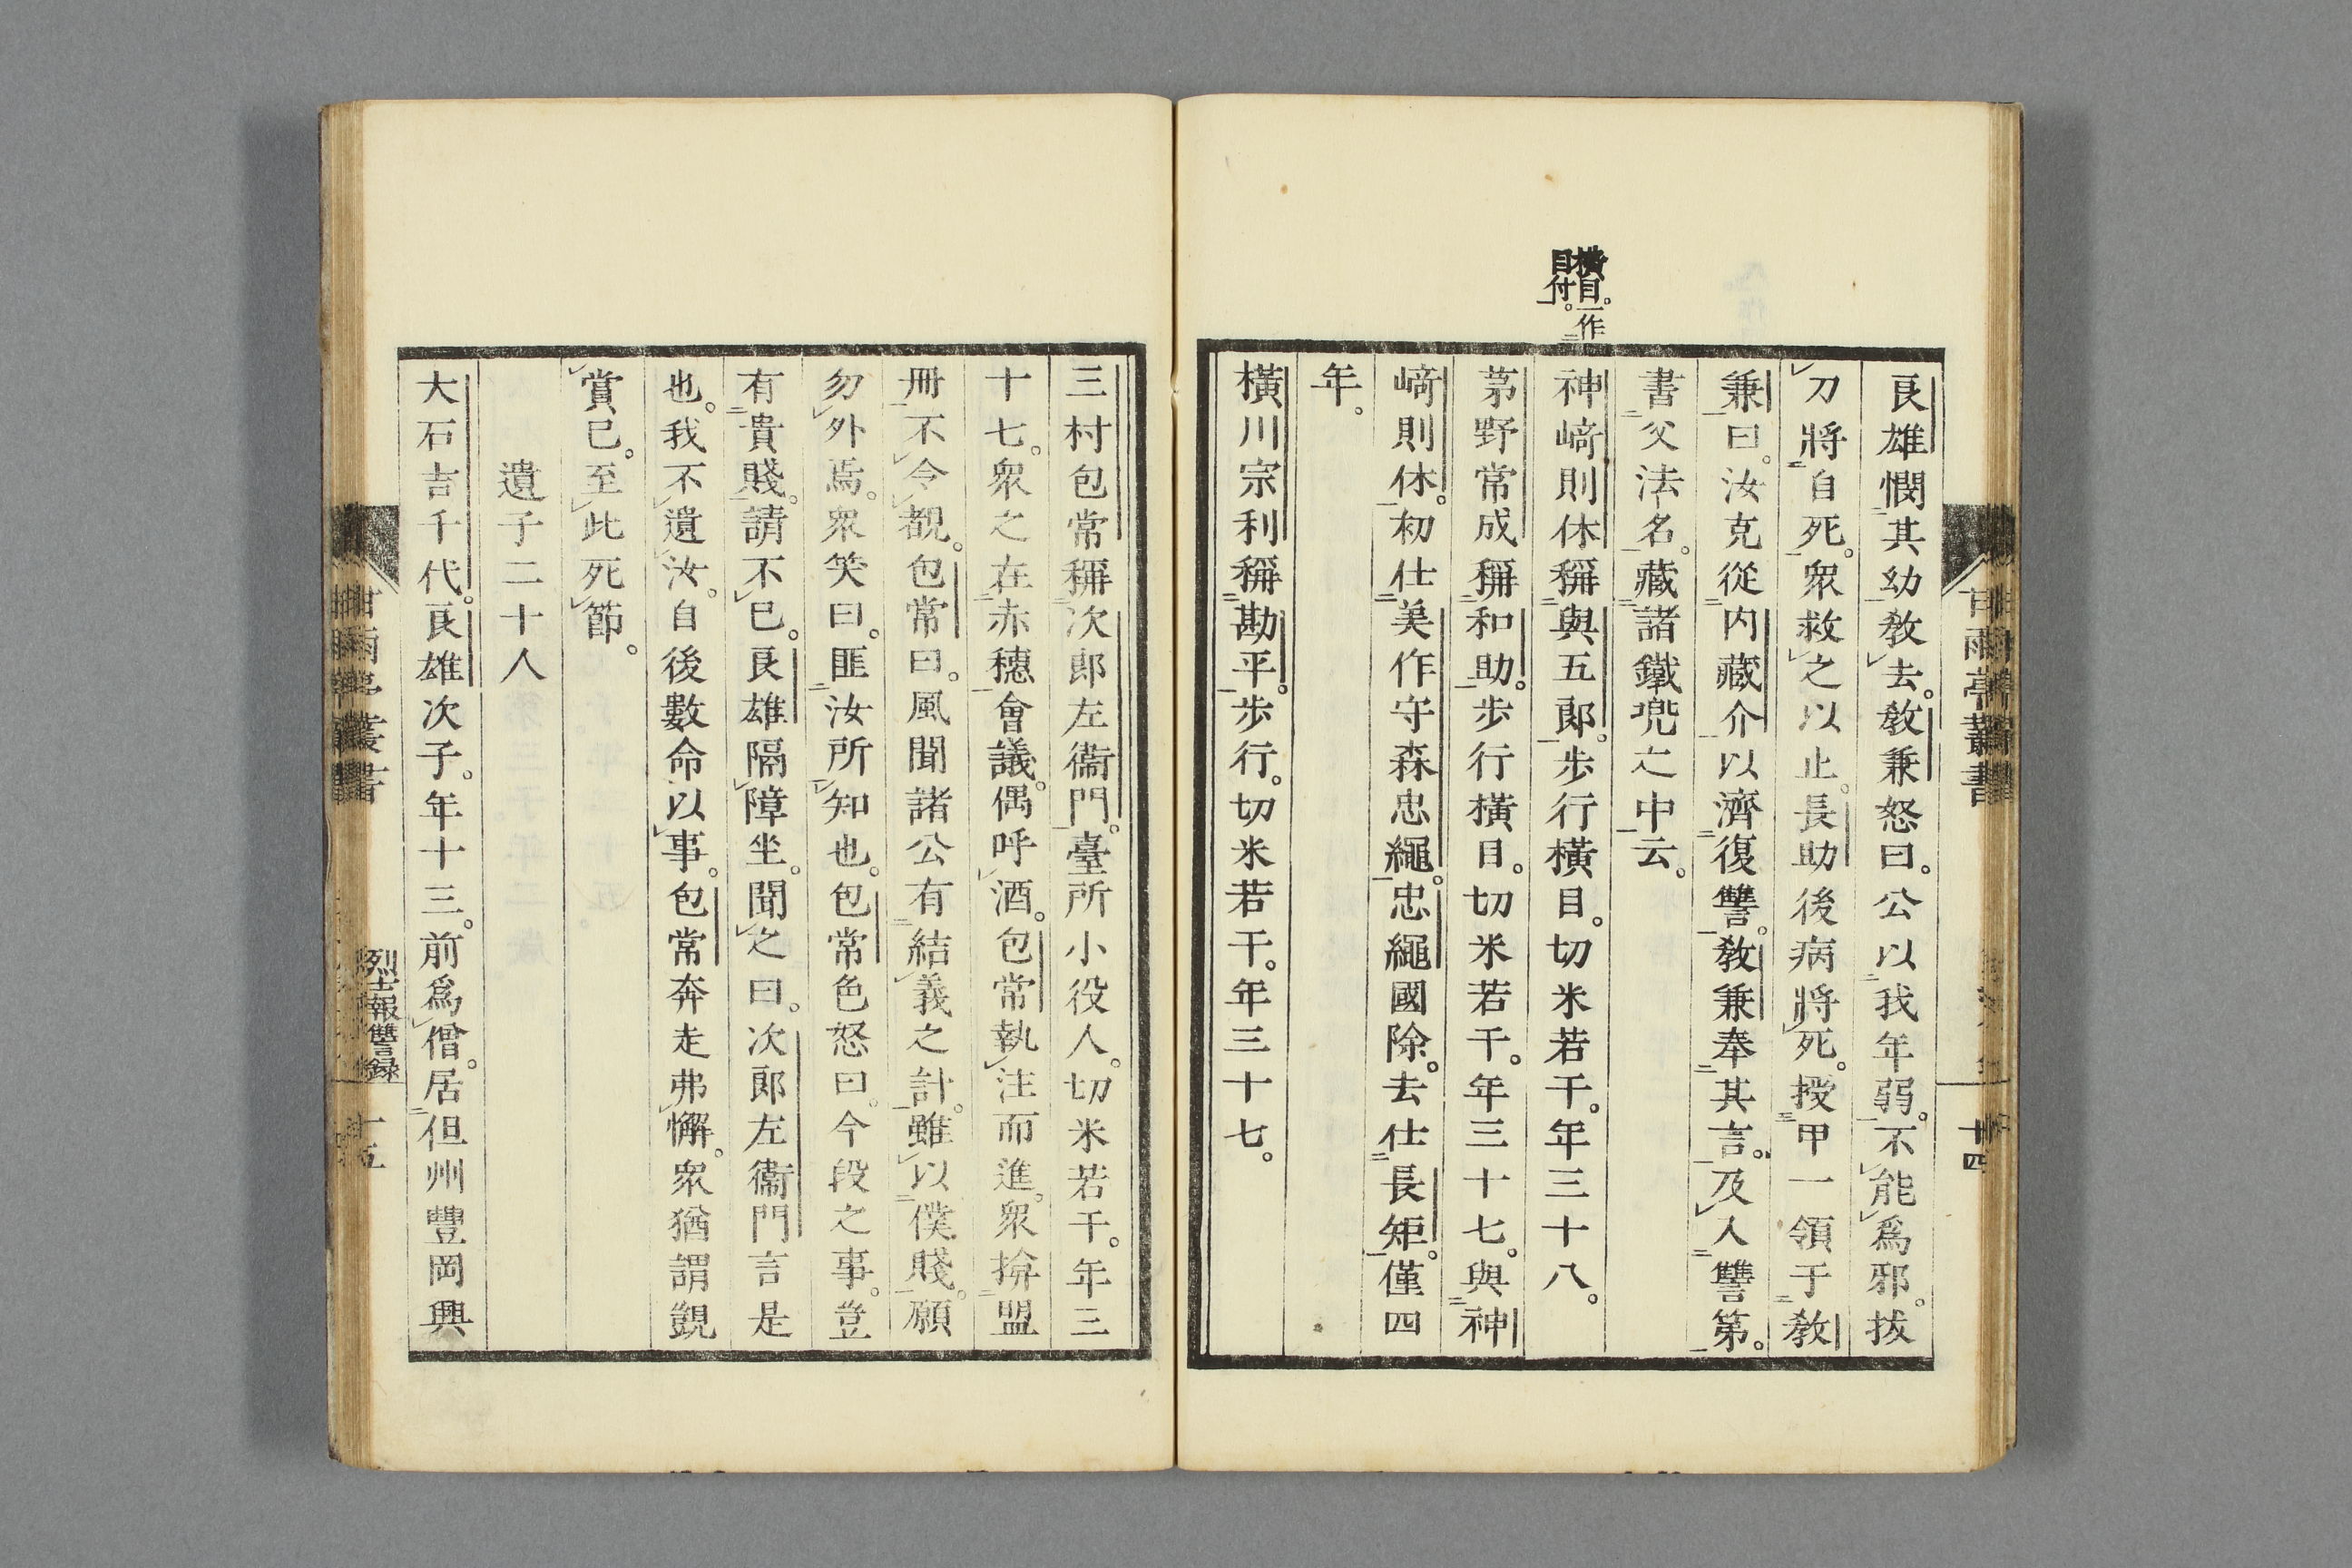 橫目。一作
目付。
良雄憫其幼敎去。敎兼怒曰。公以我年弱。不能爲邪。拔
刀將自死。衆救之以止。長助後病將死。授甲一領于敎
兼曰。汝克從内藏介以濟復讐。敎兼奉其言。及入讐第。
書父法名。藏諸鐵兜之中云。
神﨑則休稱與五郎。步行橫目。切米若干。年三十八。
茅野常成稱和助。步行橫目。切米若干。年三十七。與神
﨑則休。初仕美作守森忠繩。忠繩國除。去仕長矩。僅四
年。
橫川宗利稱勘平。步行。切米若干。年三十七。
甘雨亭叢書
十四
三村包常稱次郎左衞門。臺所小役人。切米若干。年三
十七。衆之在赤穗會議。偶呼酒。包常執注而進。衆揜盟
冊不令覩。包常曰。風聞諸公有結義之計。雖以僕賤。願
勿外焉。衆笑曰。匪汝所知也。包常色怒曰。今段之事。豈
有貴賤。請不已。良雄隔障坐。聞之曰。次郎左衞門言是
也。我不遺汝。自後數命以事。包常奔走弗懈。衆猶謂覬
賞已。至此死節。
遺子二十人
大石吉千代。良雄次子。年十三。前爲僧。居但州豐岡興
甘雨亭叢書
烈士報讐錄
十五